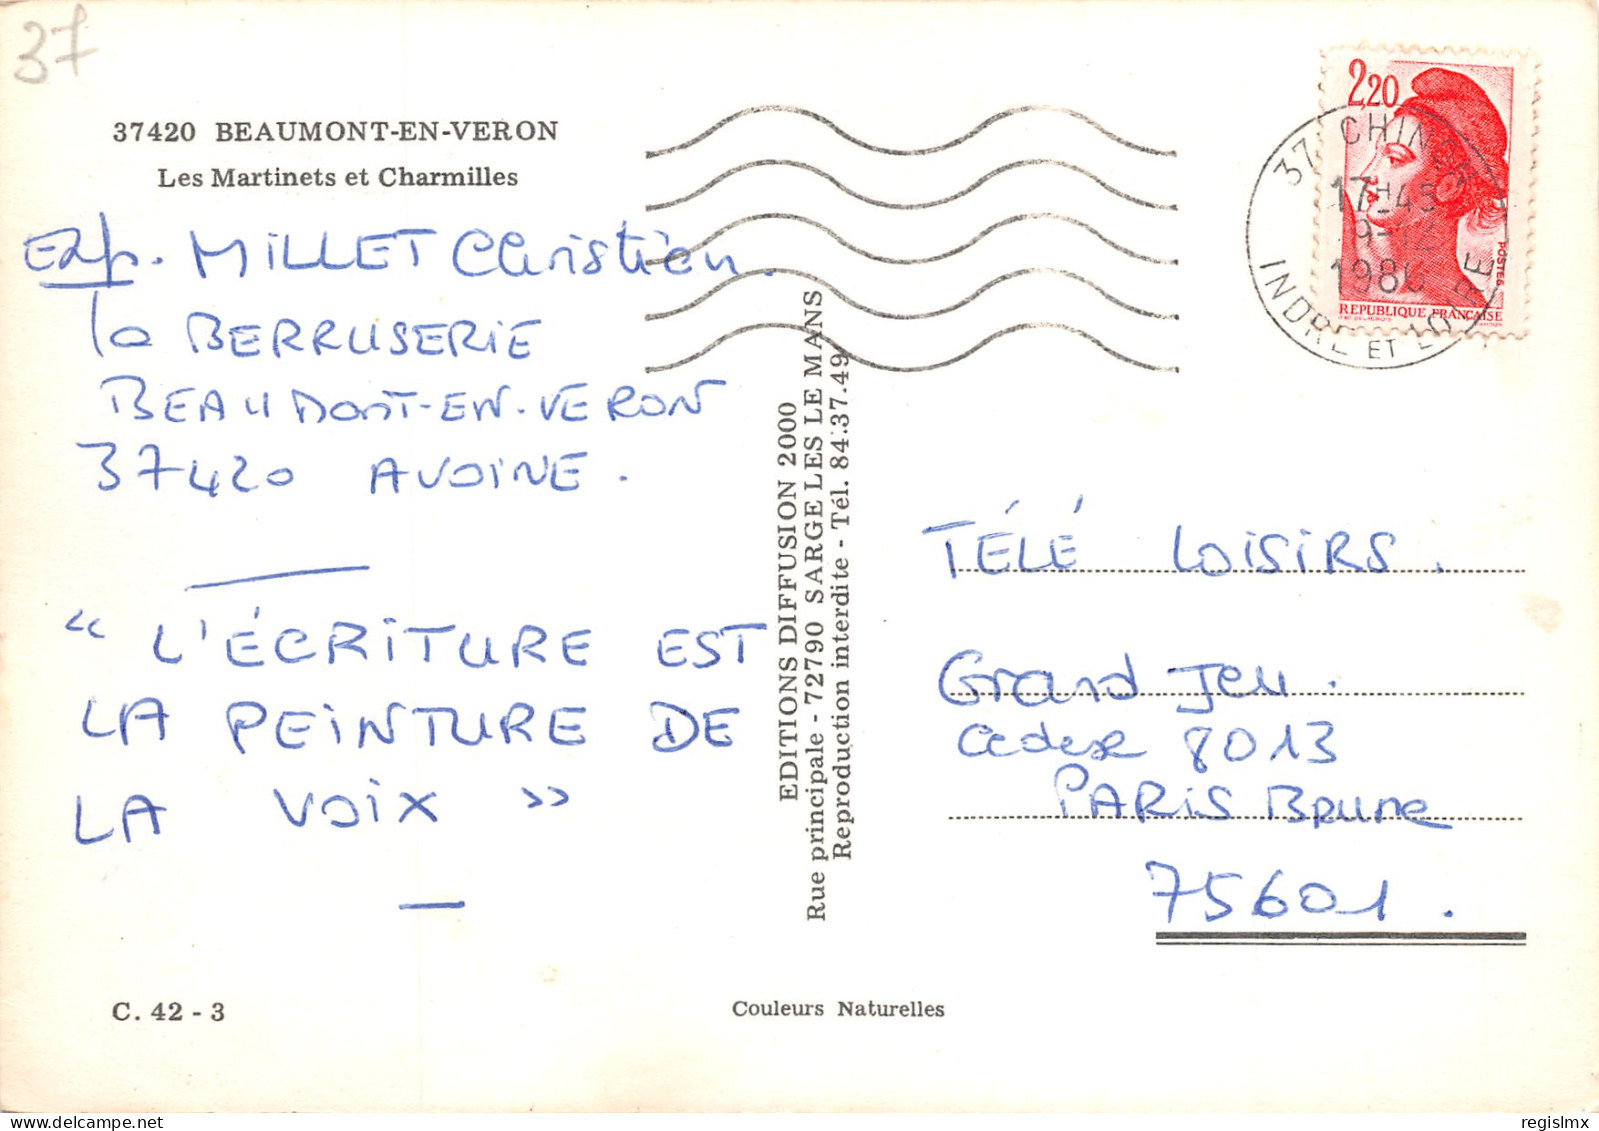 37
37420 BEAUMONT-EN-VERON
Les Martinets et Charmilles
Exp. MILLET Christien.
la BERRUSERIE
BEAUMONT-EN-VERON
37420 AVOINE.
“ L'ÉCRITURE EST
LA PEINTURE DE
LA VOIX ”
C. 42 - 3
EDITIONS DIFFUSION 2000
Rue principale - 72790 SARGE LES LE MANS
Reproduction interdite - Tél. 84.37.49
Couleurs Naturelles
2,20
POSTES
REPUBLIQUE FRANÇAISE
37 CHINON
17H45
9-12
1986
INDRE ET LOIRE
TÉLÉ LOISIRS.
Grand Jeu.
Cedex 8013
PARIS Brune
75601.
delcampe.net
regislmx